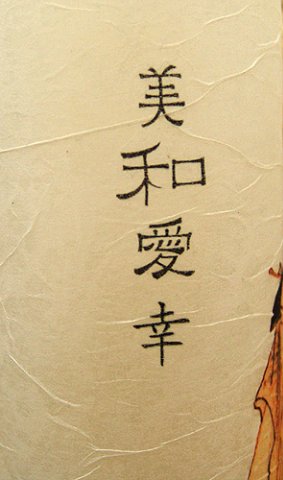 美和愛幸